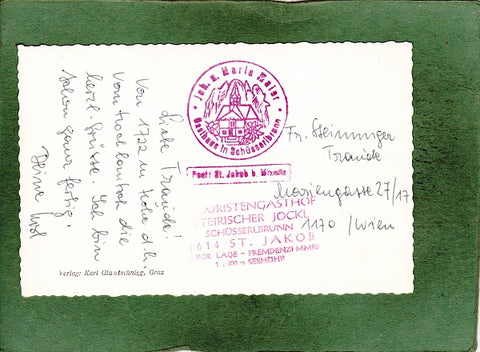 Liebe Traude!
Von 1722 m Höhe d.h.
vom Hochlantsch die
herzl. Grüsse. Ich bin
schon ganz fertig.
Deine
Verlag: Karl Glantschnigg, Graz
Joh. u. Maria Maier
Gasthaus in Schüsserlbrunn
Post: St. Jakob b. Mixnitz
Fr. Steininger
Traude
Mariengasse 27/17
1170 /Wien
TOURISTENGASTHOF
STEIRISCHER JOCKL
SCHÜSSERLBRUNN
8614 ST. JAKOB
LAGE - FREMDENZIMMER
SEEHÖHE